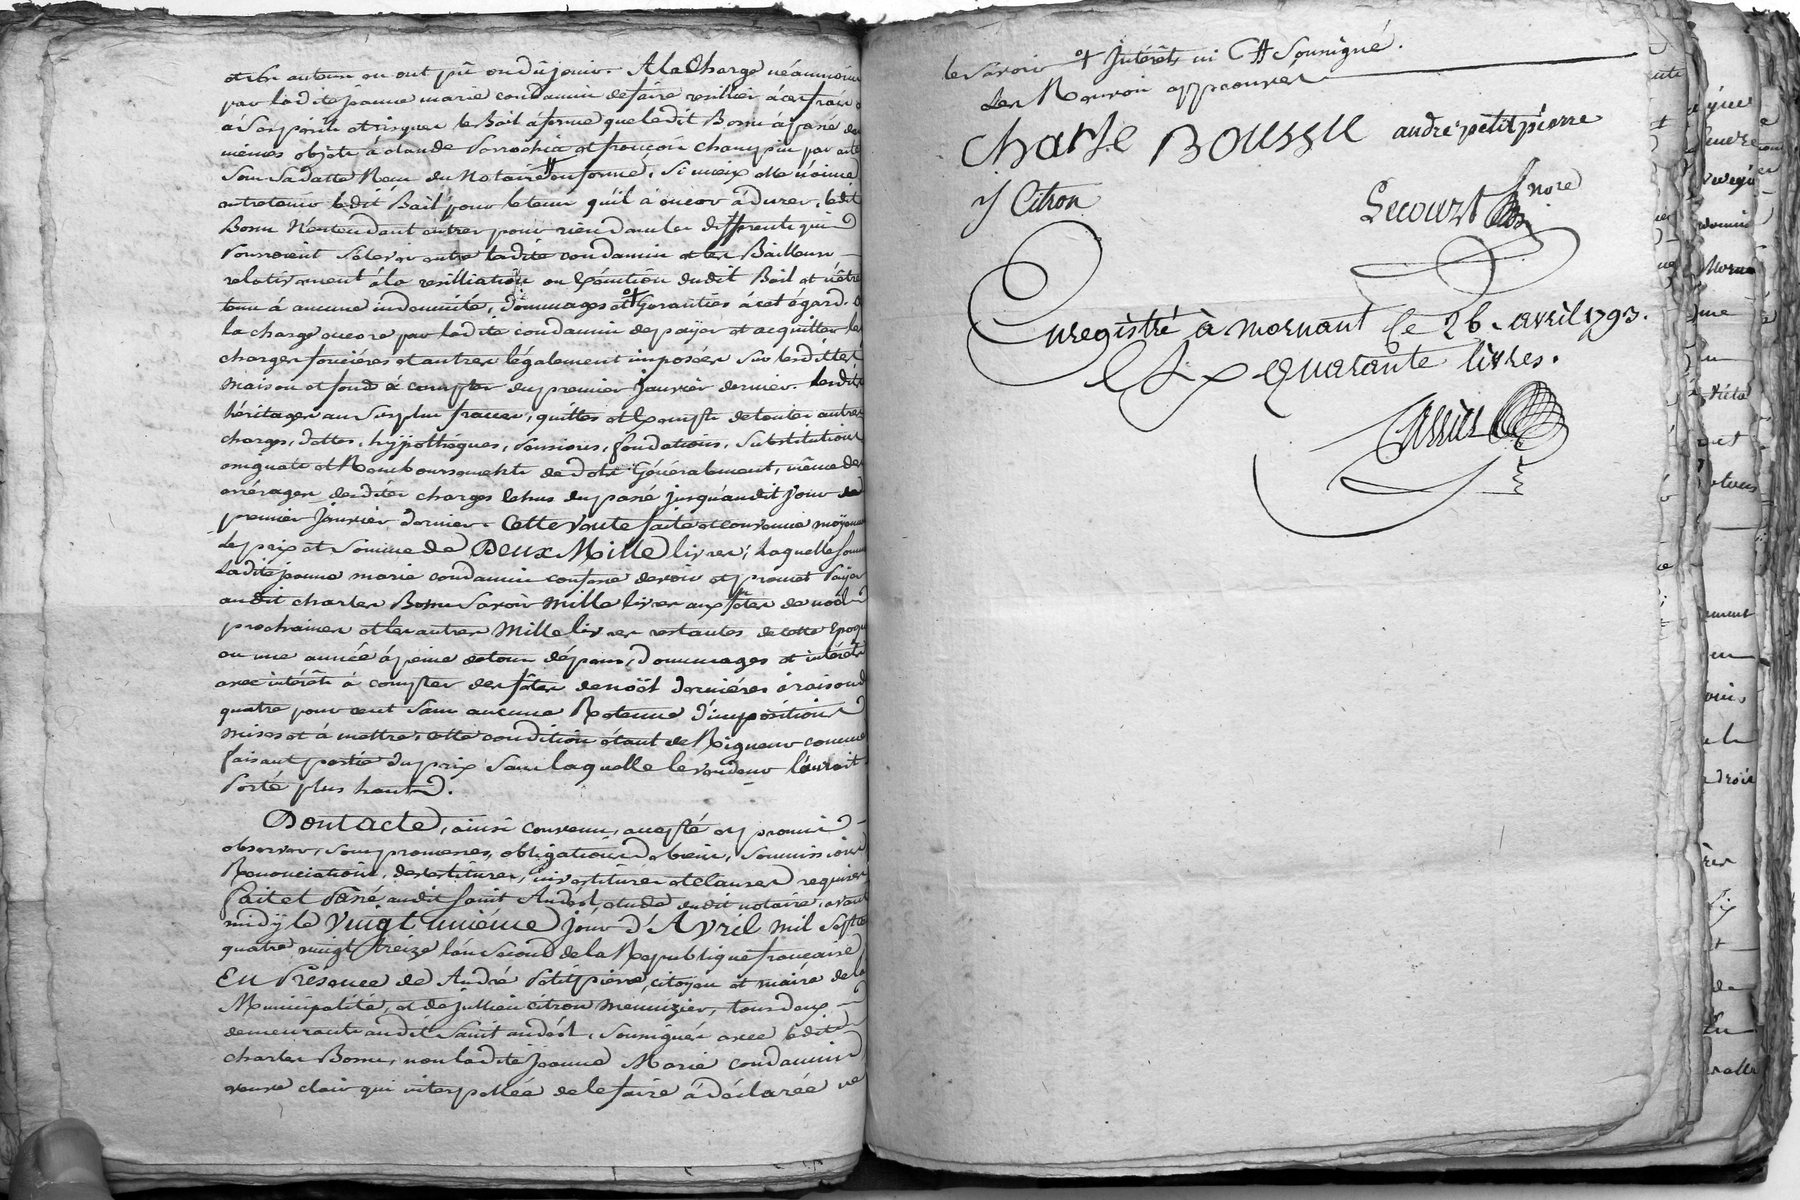 et ses auteurs en ont pû ou dû jouir. A la Charge néanmoins
par ladite jeanne marie condamin de faire resillier à ses frais
à ses périls et risques le Bail à ferme que ledit Bossu à passé des
mêmes objets à claude et françois champin par acte
sous sa datte Reçu du Notaire # soussigné, si mieux elle n'aime
entretenir ledit Bail pour le tems qu'il à encor à durer, ledit
Bossu N'entendant entrer pour rien dans les différents qui
Pourroient s'élever entre ladite condamin et les Bailleurs
relativement à la resilliation ou Exécution dudit Bail et n'être
tenu à aucune indemnité, dommages et garanties à cet égard. à
la charge encore par ladite condamin de payer et acquitter les
charges foncières et autres légalement imposées sur lesdittes
maison et fond à compter du premier Janvier dernier. Lesdits
héritages au surplus francs, quittes et Exempts de toutes autres
charges, dettes, hypothèques, Pensions, fondations, substitutions
augment et Remboursements de dots Généralement, même des
arrérages desdites charges échus du passé jusqu'audit jour de
premier Janvier dernier. Cette vente faite et convenue moyenant
Le prix et Somme de Deux Mille livres; Laquelle somme
Ladite jeanne marie condamin confesse devoir et promet Payer
audit charles Bossu savoir mille livres aux fêtes de noël
prochaines et les autres Mille livres restantes de cette Epoque
en une année à peine de tous dépens, dommages et intérêts
avec intérêts à compter des fêtes de noël dernières à raison de
quatre pour cent sans aucune Retenue d'impositions
mises et à mettre cette condition étant de Rigueur comme
faisant partie du prix sans laquelle le vendeur l'auroit
Porté plus haut.
Dont acte, ainsi convenu, accepté et promis
observer, sous promesses, obligations de biens, soumissions
Renonciations, devestitures, investitures et clauses requises
Fait et Passé audit saint Andéol, étude dudit notaire, avant
midy le Vingt unième jour d'Avril mil sept cent
quatre vingt treize l'an second de la République françaises
En Présence de André Petitpierre, citoyen et maire de la
Municipalité, et de jullien citron menuizier, tous deux
demeurants audit Saint andéol, soussignés avec ledit
charles Bossu, non ladite Jeanne Marie condamin
veuve clair qui interpellée de le faire à déclarée ne
le savoir Intérêts ni # Soussigné.
Les Renvois approuvés
charle BOUSSU andré petitpierre
J Citron Lecourt nore
Enregistré à mornant le 26. avril 1793.
quarante livres.